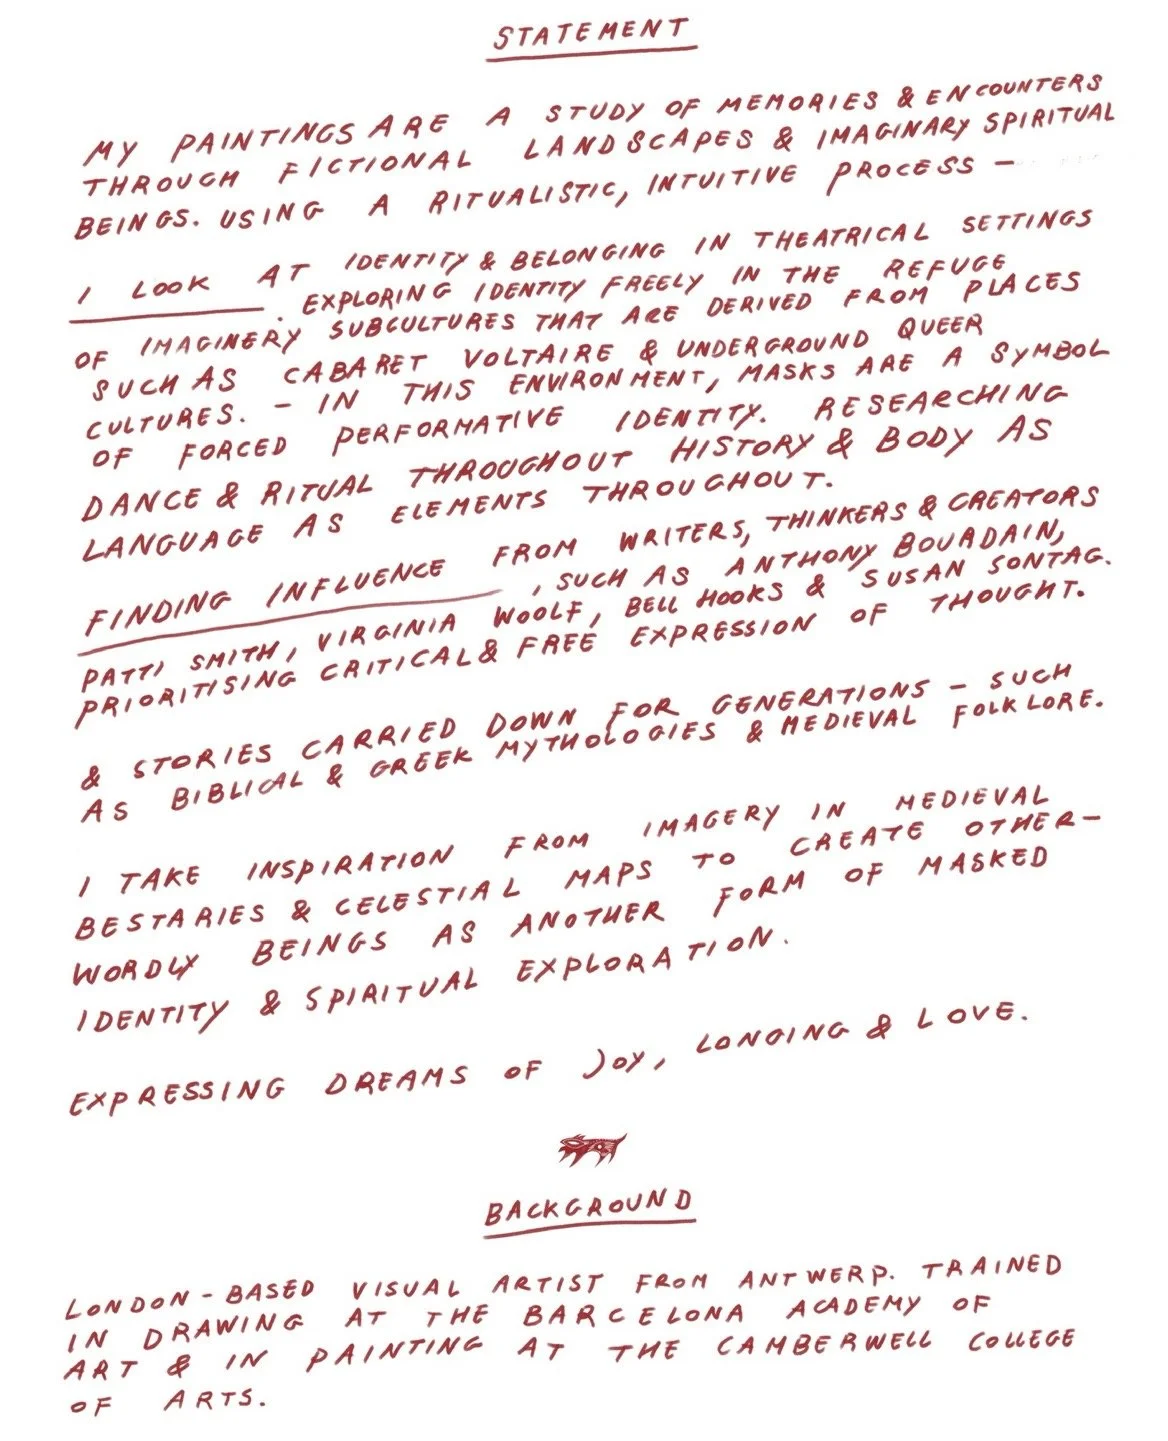 STATEMENT
MY PAINTINGS ARE A STUDY OF MEMORIES & ENCOUNTERS
THROUGH FICTIONAL LANDSCAPES & IMAGINARY SPIRITUAL
BEINGS. USING A RITUALISTIC, INTUITIVE PROCESS –
I LOOK AT IDENTITY & BELONGING IN THEATRICAL SETTINGS
. EXPLORING IDENTITY FREELY IN THE REFUGE
OF IMAGINERY SUBCULTURES THAT ARE DERIVED FROM PLACES
SUCH AS CABARET VOLTAIRE & UNDERGROUND QUEER
CULTURES. – IN THIS ENVIRONMENT, MASKS ARE A SYMBOL
OF FORCED PERFORMATIVE IDENTITY. RESEARCHING
DANCE & RITUAL THROUGHOUT HISTORY & BODY AS
LANGUAGE AS ELEMENTS THROUGHOUT.
FINDING INFLUENCE FROM WRITERS, THINKERS & CREATORS
, SUCH AS ANTHONY BOURDAIN,
PATTI SMITH, VIRGINIA WOOLF, BELL HOOKS & SUSAN SONTAG.
PRIORITISING CRITICAL & FREE EXPRESSION OF THOUGHT.
& STORIES CARRIED DOWN FOR GENERATIONS – SUCH
AS BIBLICAL & GREEK MYTHOLOGIES & MEDIEVAL FOLKLORE.
I TAKE INSPIRATION FROM IMAGERY IN MEDIEVAL
BESTARIES & CELESTIAL MAPS TO CREATE OTHER–
WORDLY BEINGS AS ANOTHER FORM OF MASKED
IDENTITY & SPIRITUAL EXPLORATION.
EXPRESSING DREAMS OF JOY, LONGING & LOVE.
BACKGROUND
LONDON-BASED VISUAL ARTIST FROM ANTWERP. TRAINED
IN DRAWING AT THE BARCELONA ACADEMY OF
ART & IN PAINTING AT THE CAMBERWELL COLLEGE
OF ARTS.